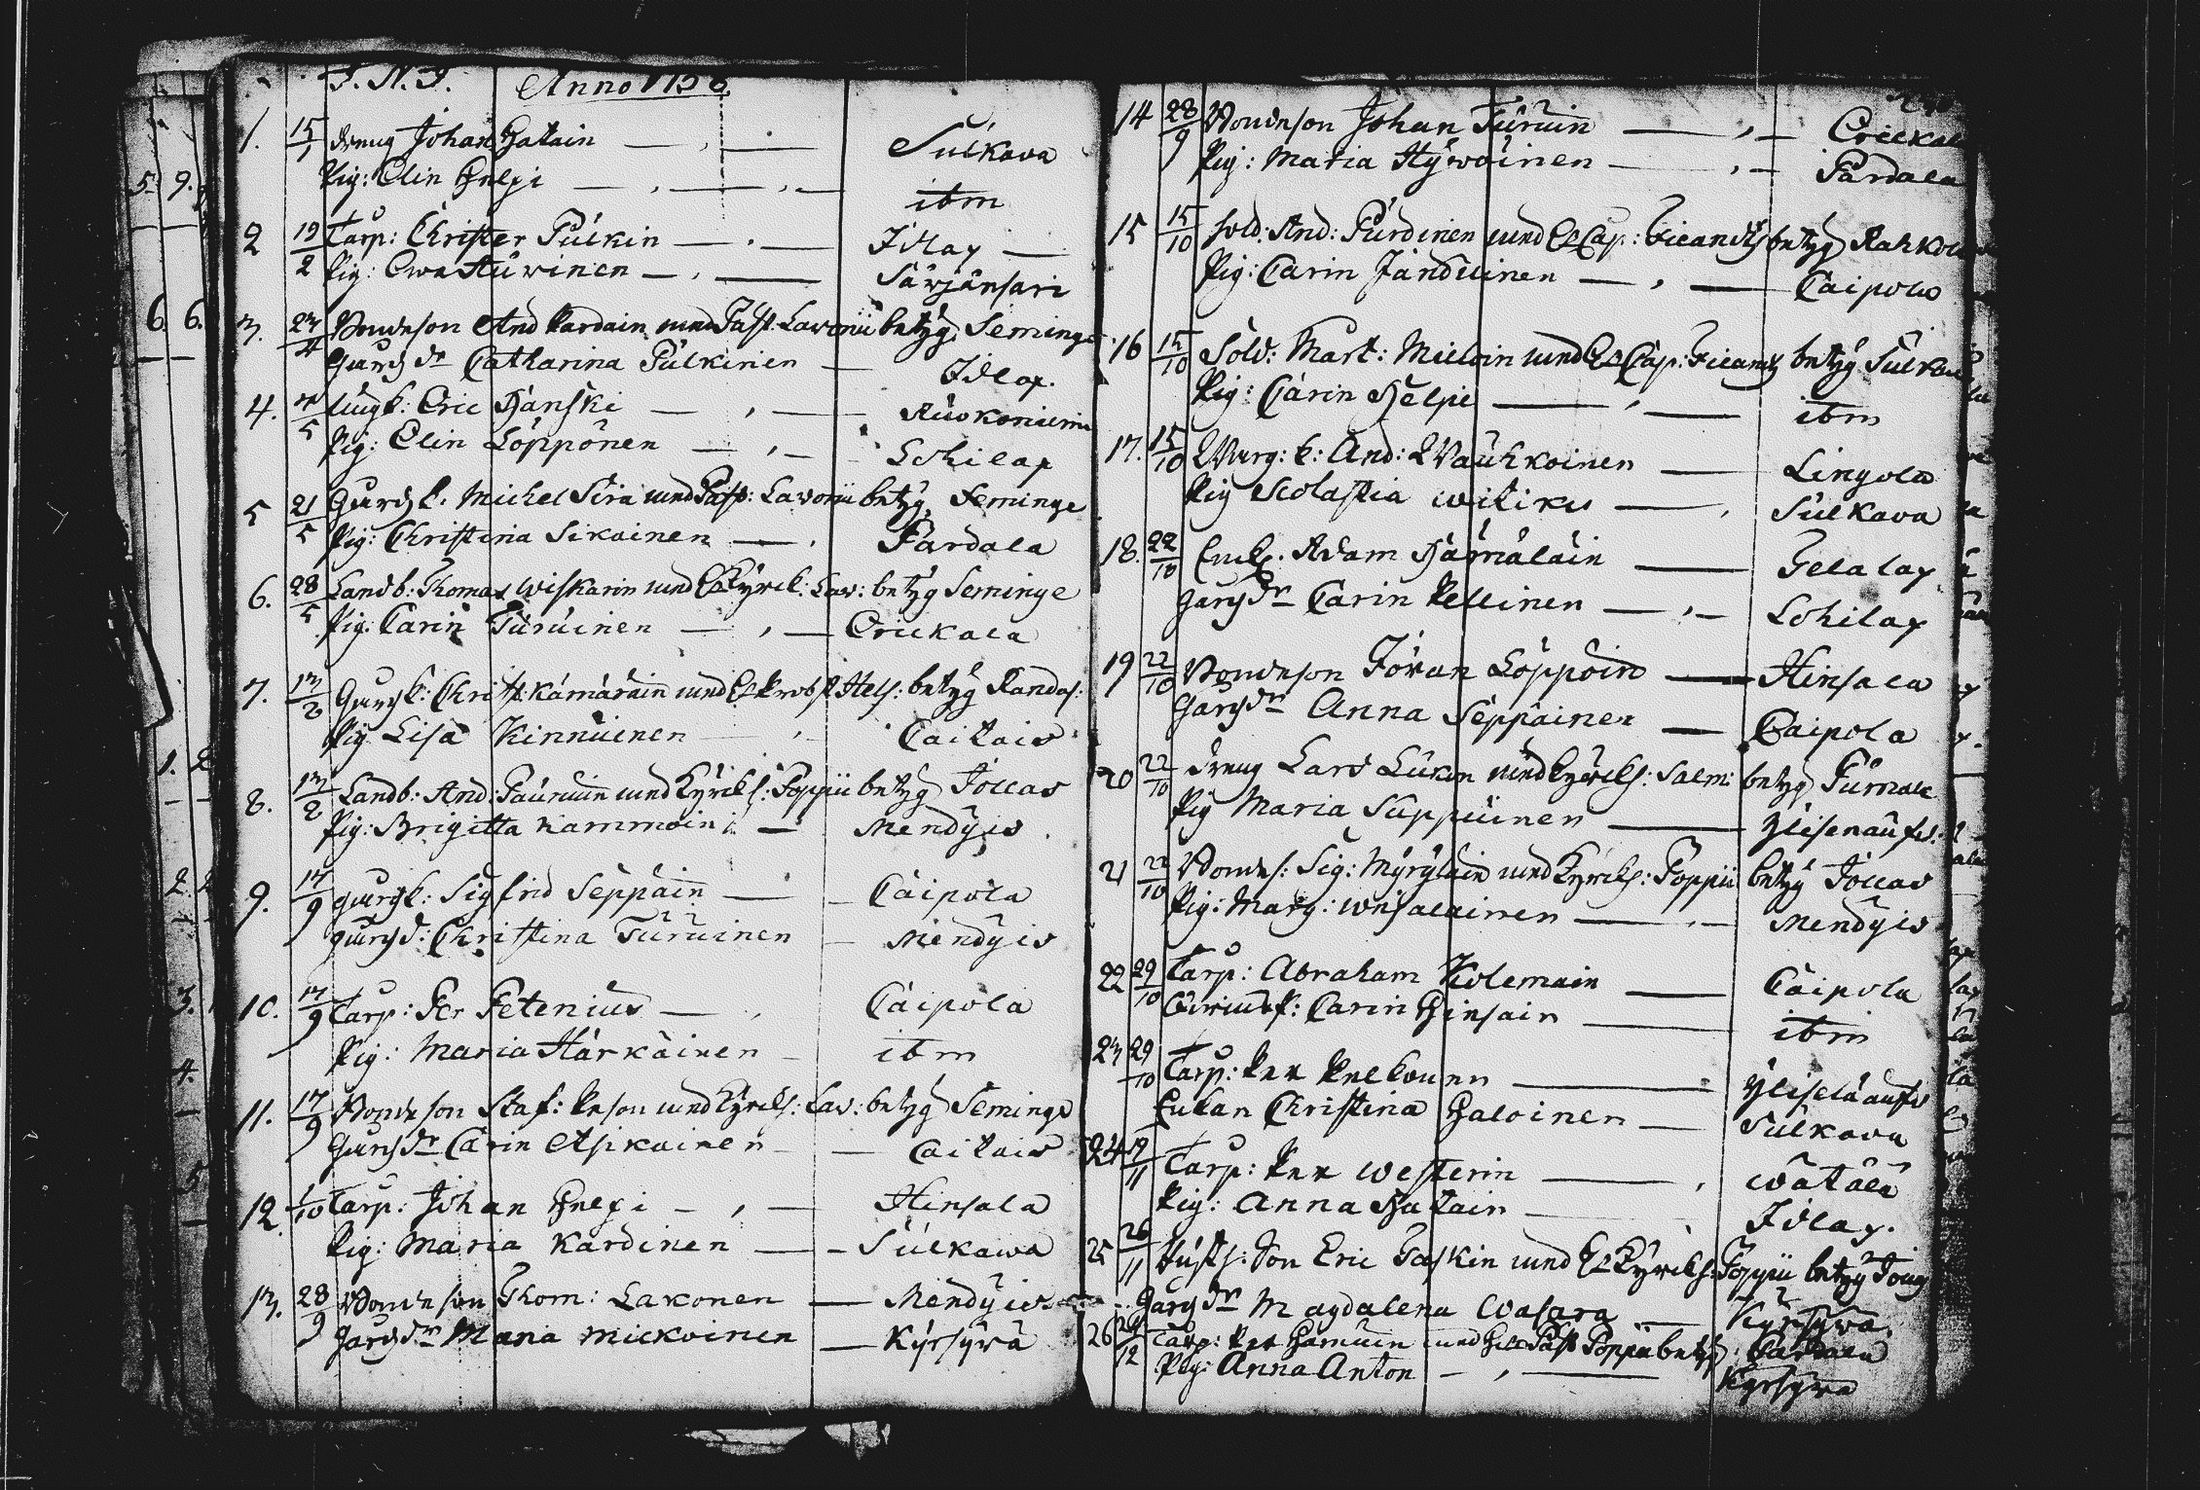 J. N. J. Anno 1758
1. 15/1 dreng Johan Hatain Sulkava
Pig: Elin Helpi ibm
2 19/2 Tarp: Christer Pulkin Idlax
Pig: Ewa Auvinen Särjänsari
3. 23/4 Bondeson And Pardain med Past: Lavonii betyg Seminge
Gårds dr Catharina Pulkinen Idlax.
4. 7/5 ungk: Eric Hänski Auokoniemi
Pig: Elin Löppönen Lohilax
5 21/5 Gårds k. Michel Sira med Past: Lavonii betyg. Seminge
Pig: Christina Sikainen Pardala
6. 28/5 Landb: Thomas Wiskarin med Kyrck: Lav: betyg Seminge
Pig: Carin Turuinen Erickala
7. 13/2 Gårds k: Christ: Kämäräin med Probst Hels: betyg Randas:
Pig Lisa Kinnuinen Caitais
8. 13/2 Landb: And: Pauruin med Kyrcks: Poppii betyg Jockas
Pig: Brigitta Kammoin Mendyis
9. 17/9 gårds k: Sigfrid Seppäin Caipola
gårds d: Christina Turuinen Mendyis
10. 17/9 Tarp: Per Petenius Caipola
Pig: Maria Härkäinen ibm
11. 17/9 Bondeson Staf: Person med Kyrcks: Lav: betyg Seminge
Gårds dr Carin Asikainen Caitais
12 1/10 Tarp: Johan Helpi Hinsala
Pig: Maria Kardinen Sulkawa
13. 28/9 Bondeson Thom: Lakonen Mendyis
Gårds dr Maria Mickoinen Kyrsyrä
14 28/9 Bondeson Johan Turuin Erickal
Pig: Maria Hyvöinen Pardala
15 15/10 sold: And: Purdinen med Cap: betyg Rahkola
Pig: Carin Janduinen Caipola
16 15/10 Sold: Mart: Mieloin med Cap: betyg Sulkava
Pig: Carin Helpi ibm
17. 15/10 And: Wauhkoinen Lingola
Pig Scolastia Witikis Sulkava
18. 22/10 Enck. Adam Hämäläin Telalax
Gårds dr Carin Pellinen Lohilax
19 22/10 Bondeson Jöran Löppöin Hinsala
Gårds dr Anna Seppäinen Caipola
20 22/10 Dreng Lars Lukin med Kyrcks: Salm: betyg Pumala
Pig Maria Suppuinen
21 22/10 Bondes: Sig: Myryläin med Kyrcks: Poppii betyg Jockas
Pig: Marg: Wesalainen Mendyis
22 29/10 Tarp: Abraham Kolemain Caipola
Carin Hinsain ibm
23 29/10 Tarp: Per Pelkonen
Enkan Christina Haloinen Sulkava
24 19/11 Tarp: Per Westerin Wätälä
Pig: Anna Hatain Idlax.
25 26/11 Son Eric Taskin med Kyrcks: Poppii betyg
Gårds dr Magdalena Wasara Kyrsyrä
26 26/12 Tarp: Per Hamuin med Past Poppii betyg
Pig: Anna Anton Kyrsyrä